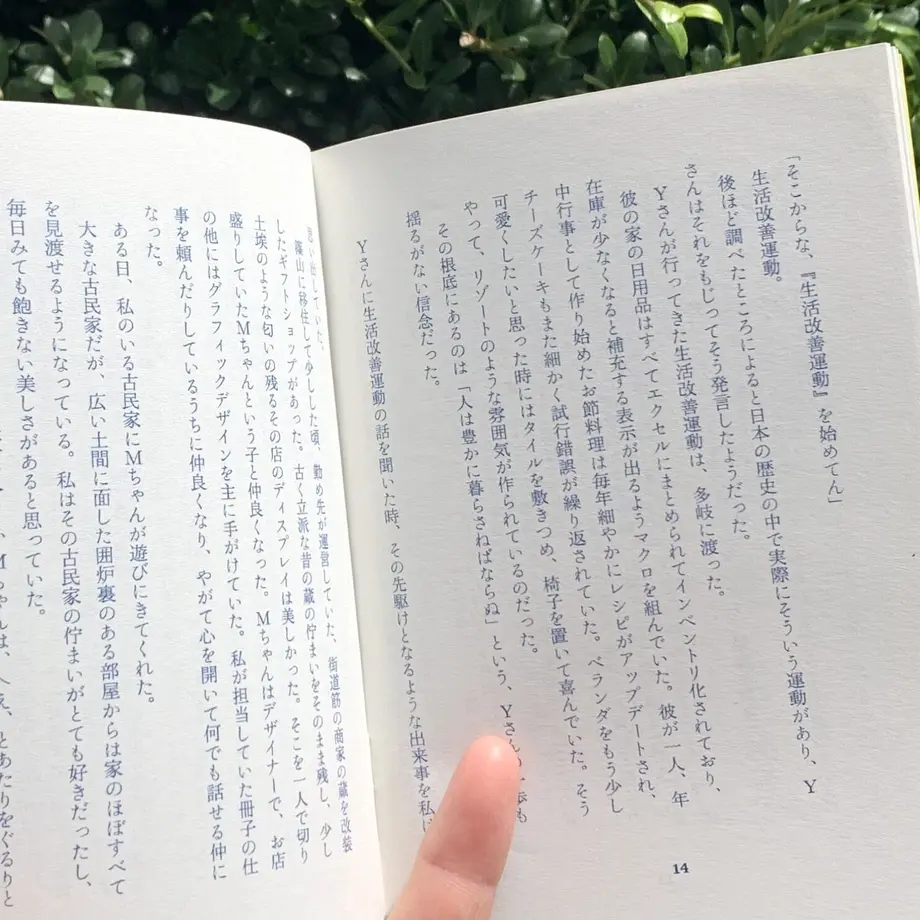 「そこからな、『生活改善運動』を始めてん」
生活改善運動。
後ほど調べたところによると日本の歴史の中で実際にそういう運動があり、Y
さんはそれをもじってそう発言したようだった。
Yさんが行ってきた生活改善運動は、多岐に渡った。
彼の家の日用品はすべてエクセルにまとめられてインベントリ化されており、
在庫が少なくなると補充する表示が出るようマクロを組んでいた。彼が一人、年
中行事として作り始めたお節料理は毎年細やかにレシピがアップデートされ、
チーズケーキもまた細かく試行錯誤が繰り返されていた。ベランダをもう少し
可愛くしたいと思った時にはタイルを敷きつめ、椅子を置いて喜んでいた。そう
やって、リゾートのような雰囲気が作られているのだった。
その根底にあるのは「人は豊かに暮らさねばならぬ」という、Yさんの
揺るがない信念だった。
Yさんに生活改善運動の話を聞いた時、その先駆けとなるような出来事を私
思い出していた。
篠山に移住して少しした頃、勤め先が運営していた、街道筋の商家の蔵を改装
したギフトショップがあった。古く立派な昔の蔵の佇まいをそのまま残し、少し
土埃のような匂いの残るその店のディスプレイは美しかった。そこを一人で切り
盛りしていたMちゃんという子と仲良くなった。Mちゃんはデザイナーで、お店
の他にはグラフィックデザインを主に手がけていた。私が担当していた冊子の仕
事を頼んだりしているうちに仲良くなり、やがて心を開いて何でも話せる仲に
なった。
ある日、私のいる古民家にMちゃんが遊びにきてくれた。
大きな古民家だが、広い土間に面した囲炉裏のある部屋からは家のほぼすべて
を見渡せるようになっている。私はその古民家の佇まいがとても好きだったし、
毎日みても飽きない美しさがあると思っていた。
は、へえ、とあたりをぐるりと
14